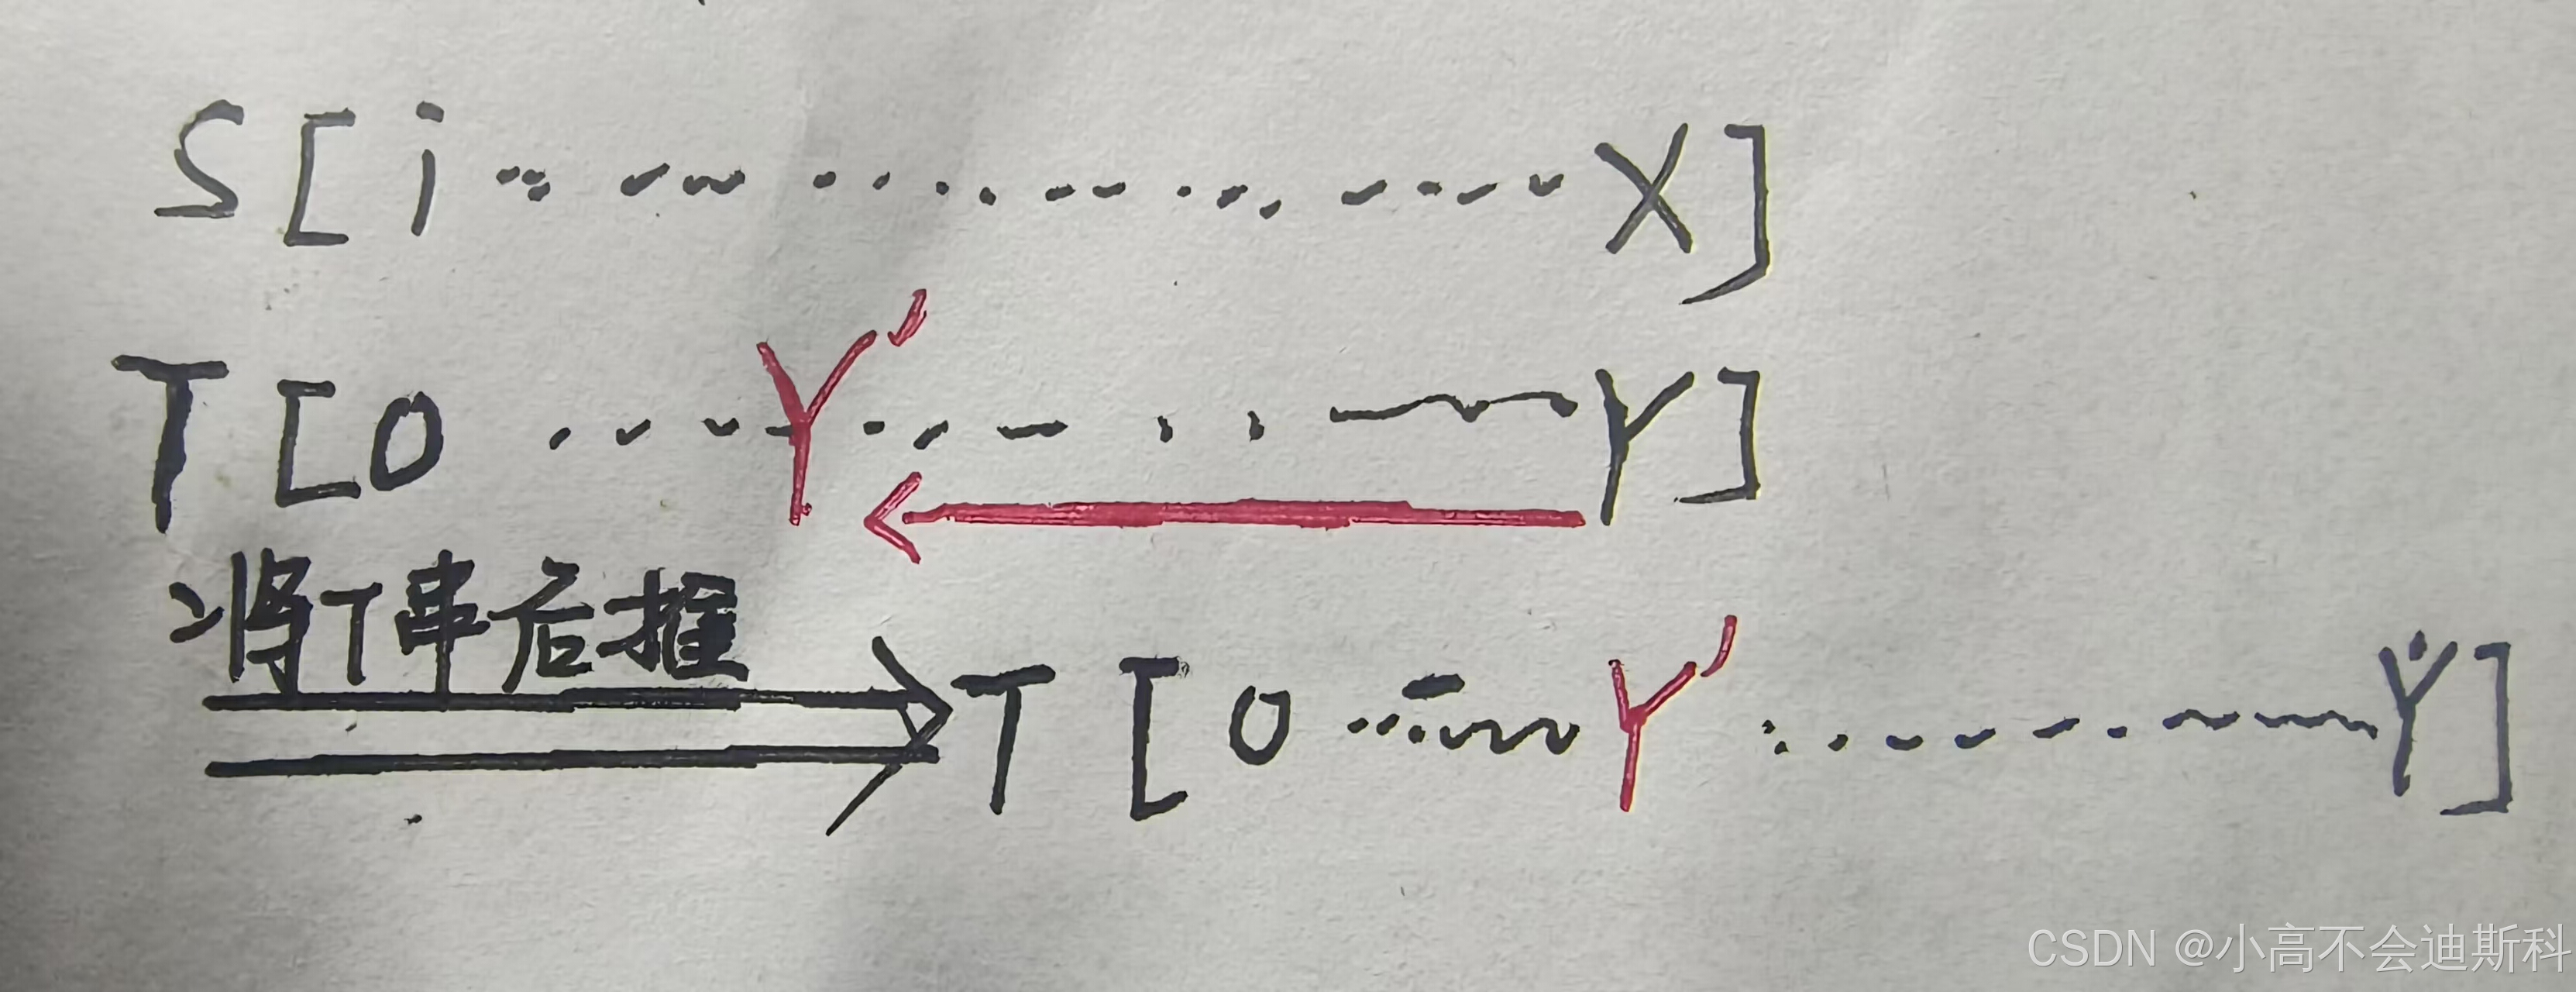 S[i ............ X]
T[0 .... Y' ........ Y]
将T串后推
T[0 .... Y' ........ Y]
CSDN @小高不会迪斯科